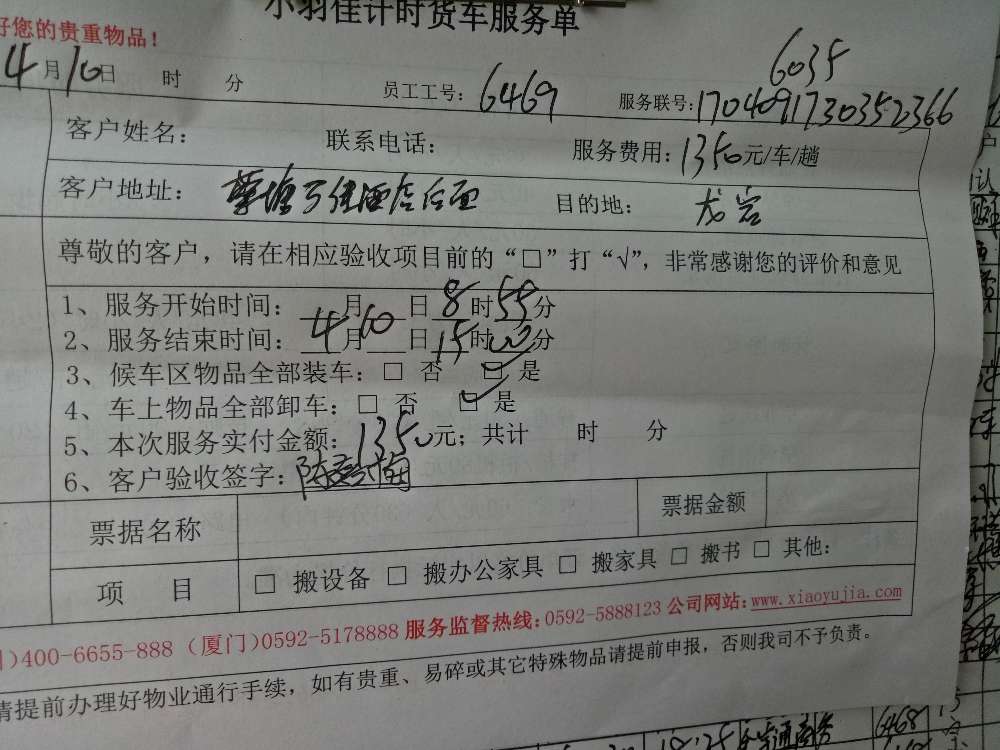 小羽佳计时货车服务单
好您的贵重物品！
4月10日 时 分 员工工号：6469 服务联号：1704091730352366
6035
客户姓名： 联系电话： 服务费用：1350元/车/趟
客户地址： 后面 目的地： 龙岩
尊敬的客户，请在相应验收项目前的“□”打“√”，非常感谢您的评价和意见
1、服务开始时间：___月___日8时55分
2、服务结束时间：4月10日15时00分
3、候车区物品全部装车：□ 否 ☑ 是
4、车上物品全部卸车：□ 否 ☑ 是
5、本次服务实付金额：1350元；共计 时 分
6、客户验收签字：
票据名称 票据金额
项 目 □ 搬设备 □ 搬办公家具 □ 搬家具 □ 搬书 □ 其他：
)400-6655-888（厦门）0592-5178888 服务监督热线：0592-5888123 公司网站：www.xiaoyujia.com
请提前办理好物业通行手续，如有贵重、易碎或其它特殊物品请提前申报，否则我司不予负责。
18:25 6468